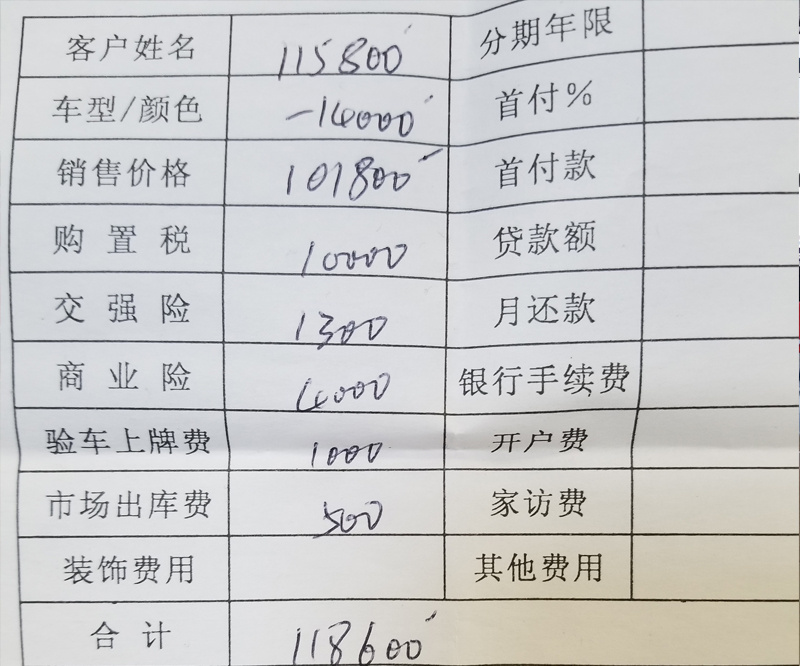 客户姓名 115800 分期年限
车型/颜色 -14000 首付%
销售价格 101800 首付款
购置税 10000 贷款额
交强险 1300 月还款
商业险 4000 银行手续费
验车上牌费 1000 开户费
市场出库费 500 家访费
装饰费用 其他费用
合计 118600